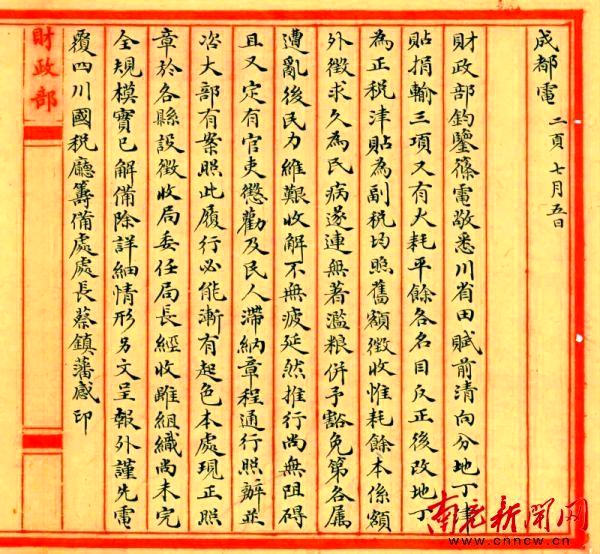 成都電 二頁 七月五日
財政部鈞鑒篠電敬悉川省田賦前清向分地丁津
貼捐輸三項又有火耗平餘各名目反正後改地丁
為正稅津貼為副稅均照舊額徵收惟耗餘本係額
外徵求久為民病遂連無著濫粮併予豁免第各屬
遭亂後民力維艱收解不無疲延然推行尚無阻碍
且又定有官吏懲勸及民人滯納章程通行照辦並
咨大部有案照此履行必能漸有起色本處現正照
章於各縣設徵收局委任局長經收雖組織尚未完
全規模實已解備除詳細情形另文呈報外謹先電
覆四川國稅廳籌備處處長蔡鎮藩感印
財政部
南充新闻网
www.cnncw.cn